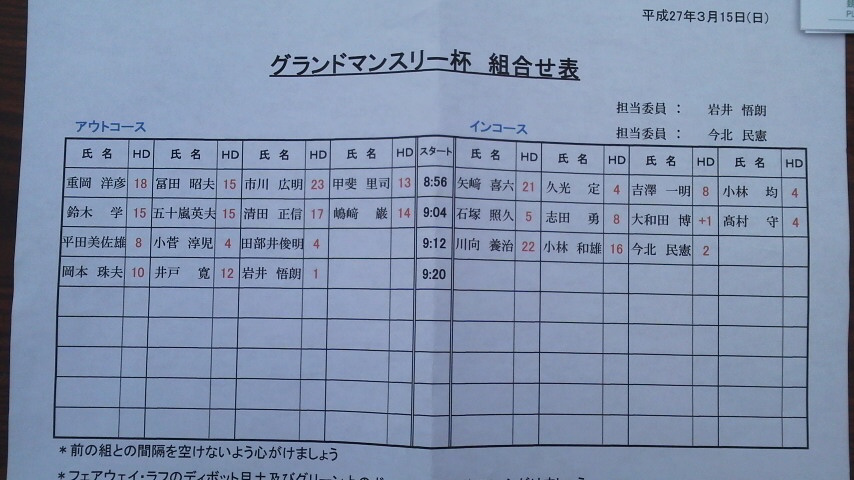 平成27年3月15日(日)
グランドマンスリー杯 組合せ表
担当委員 : 岩井 悟朗
担当委員 : 今北 民憲
アウトコース インコース
氏 名 HD 氏 名 HD 氏 名 HD 氏 名 HD スタート 氏 名 HD 氏 名 HD 氏 名 HD 氏 名 HD
重岡 洋彦 18 冨田 昭夫 15 市川 広明 23 甲斐 里司 13 8:56 矢崎 喜六 21 久光 定 4 吉澤 一明 8 小林 均 4
鈴木 学 15 五十嵐英夫 15 清田 正信 17 嶋﨑 巌 14 9:04 石塚 照久 5 志田 勇 8 大和田 博 +1 高村 守 4
平田美佐雄 8 小菅 淳児 4 田部井俊明 4 9:12 川向 養治 22 小林 和雄 16 今北 民憲 2
岡本 珠夫 10 井戸 寛 12 岩井 悟朗 1 9:20
*前の組との間隔を空けないよう心がけましょう
*フェアウェイ・ラフのディボット目土及びグリーン上の